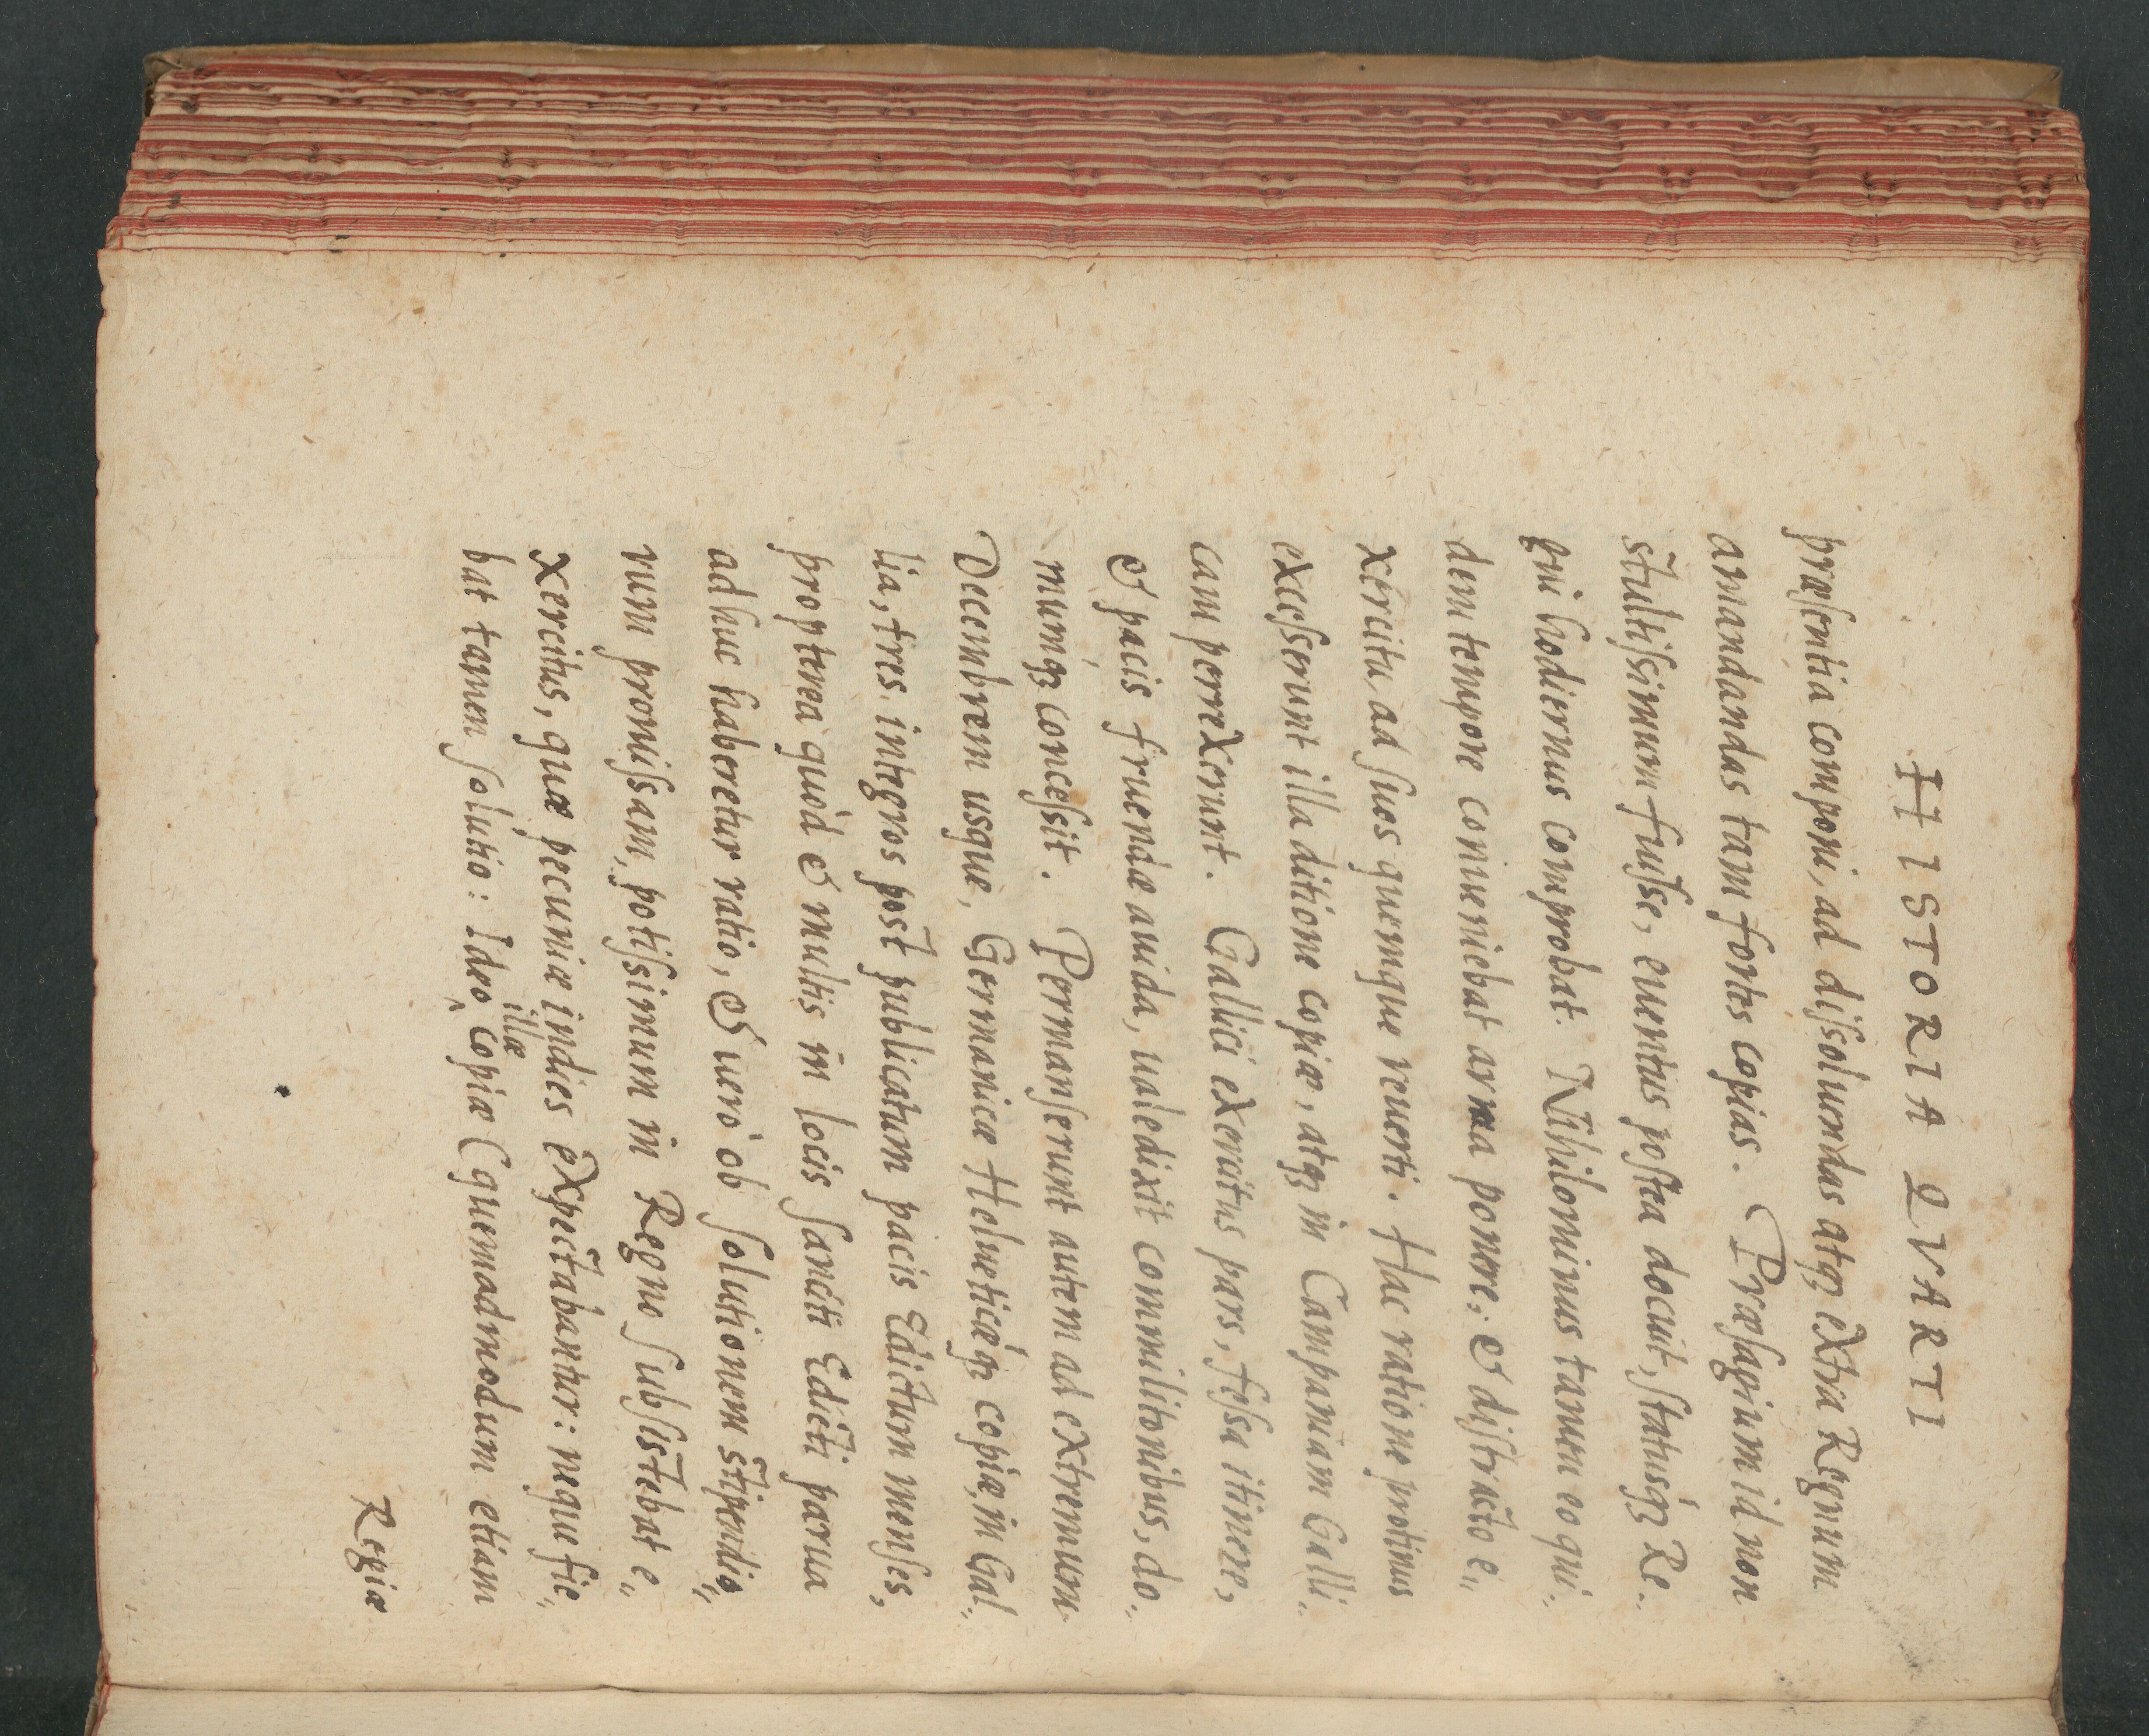 HISTORIA QVARTI
præsentia componi, ad dissoluendas atqꝫ extra Regnum
amandandas tam fortes copias. Præsagium id non
stultissimum fuisse, euentus postea docuit, statusqꝫ Re..
gni hodiernus comprobat. Nihilominus tamen eo qui..
dem tempore conueniebat arma ponere, & distracto e„
xercitu ad suos quemque reuerti. Hac ratione protinus
excesserunt illa ditione copiæ, atqꝫ in Campaniam Galli..
cam perrexerunt. Gallici exercitus pars, fessa itinere,
& pacis fruendæ auida, ualedixit commilitonibus, do„
mumqꝫ concessit. Permanserunt autem ad extremum
Decembrem usque, Germanicæ Helueticæqꝫ copiæ, in Gal„
lia, tres, integros post publicatum pacis Edictum menses,
propterea quòd & multis in locis sancti Edicti parua
adhuc haberetur ratio, & uerò ob solutionem stipendio„
rum promissam, potissimum in Regno subsistebat e„
xercitus, quæ pecuniæ indies expectabantur: neque fie„
bat tamen solutio: Ideo illæ copiæ (quemadmodum etiam
Regiæ